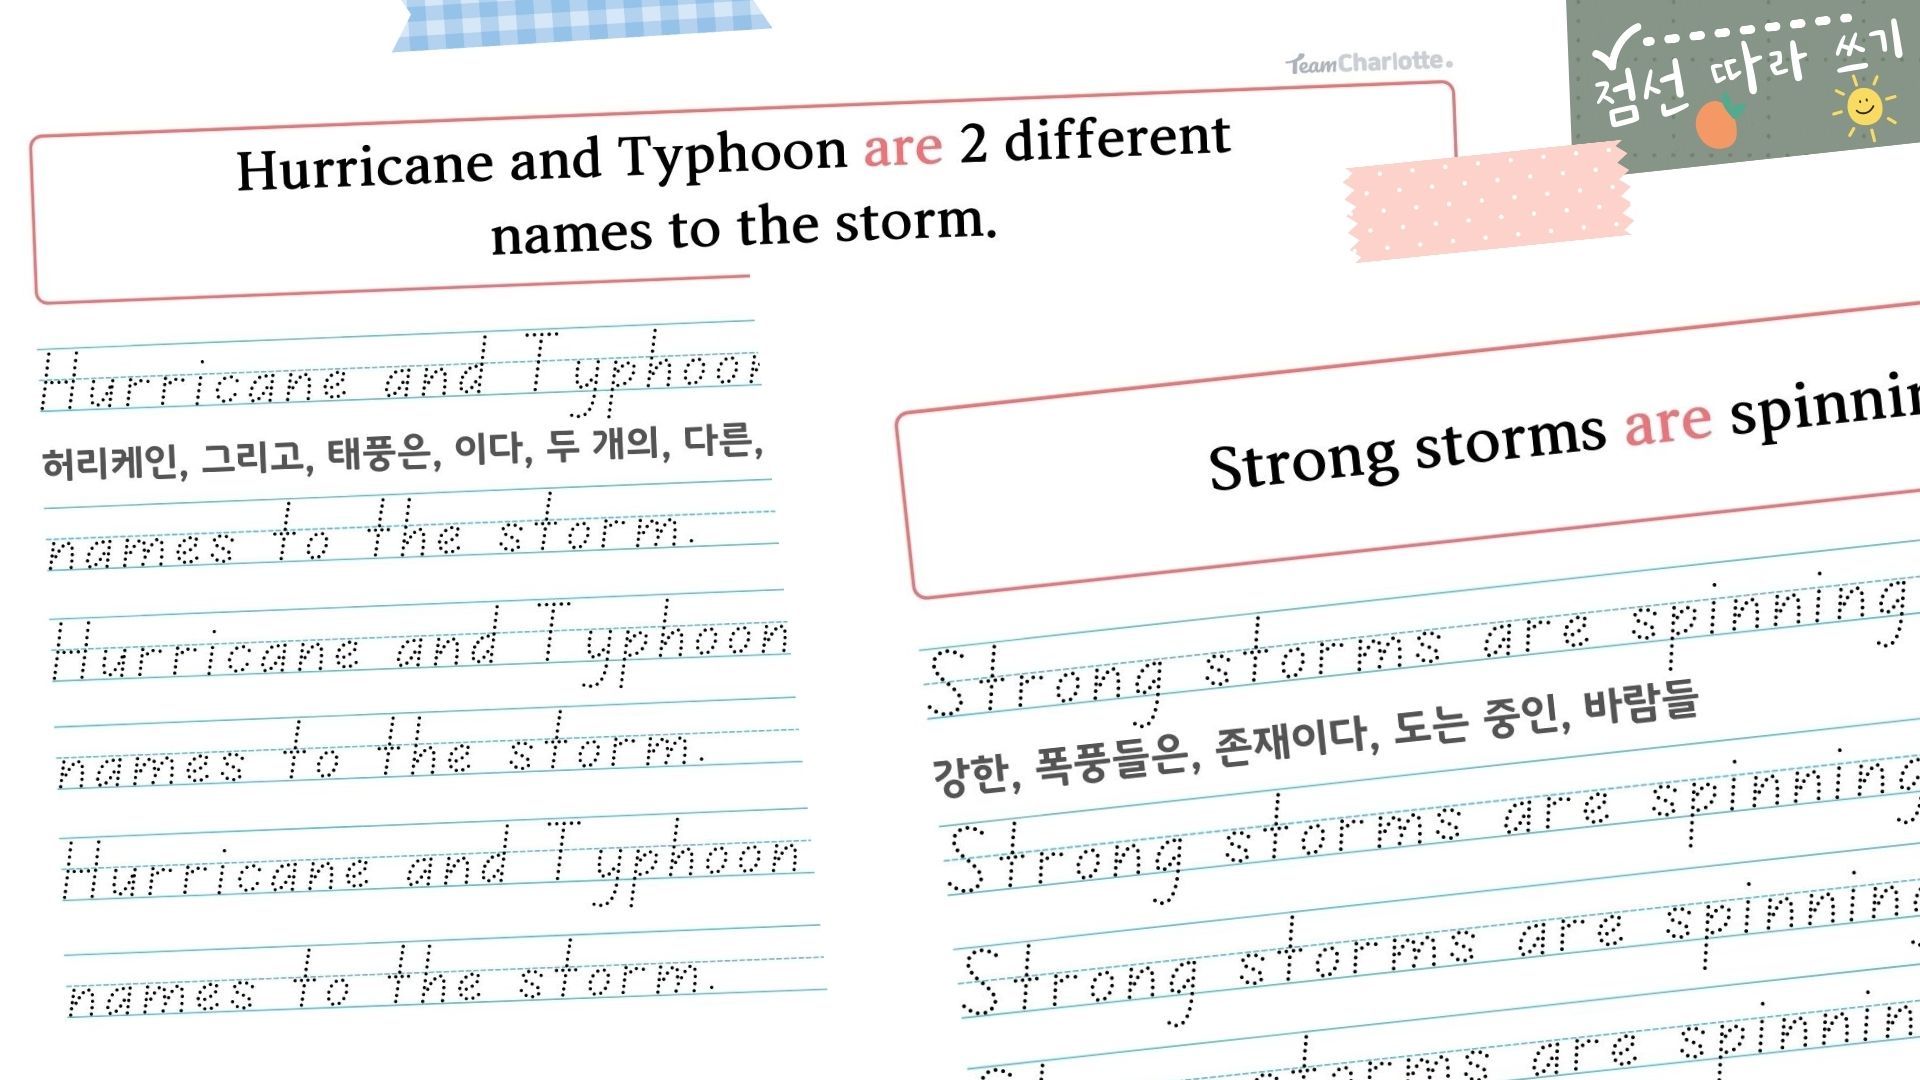 TeamCharlotte.
점선 따라 쓰기
Hurricane and Typhoon are 2 different
names to the storm.
Hurricane and Typhoon
허리케인, 그리고, 태풍은, 이다, 두 개의, 다른,
names to the storm.
Hurricane and Typhoon
names to the storm.
Hurricane and Typhoon
names to the storm.
Strong storms are
Strong storms are spinning
강한, 폭풍들은, 존재이다, 도는 중인, 바람들
Strong storms are spinning
Strong storms are
storms are